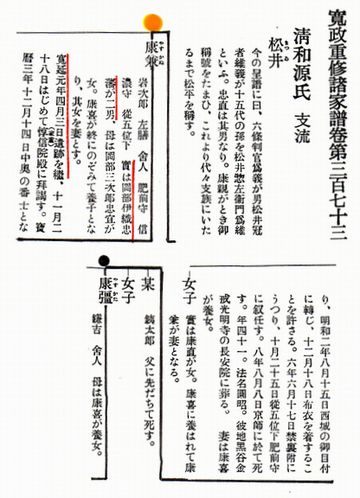 寛政重修諸家譜巻第三百七十三
清和源氏 支流
松井
今の呈譜に曰、六條判官爲義が男松井冠
者維義が十五代の孫を松井惣左衛門爲維
といふ。忠直は其男なり。康親がとき御
稱號をたまひ、これより代々支族にいた
るまで松平を稱す。
康兼
岩次郎 左膳 舍人 肥前守 信
濃守 從五位下 實は岡部伊織忠
藩が二男、母は岡部三次郎忠宜が
女。康喜が終にのぞみて養子とな
り、其女を妻とす。
寛延元年四月三日遺跡を繼、十一月二
十八日はじめて惇信院殿に拜謁す。寶
暦三年十二月十四日中奥の番士とな
り、明和二年八月十五日西城の御目付
に轉じ、十二月十八日布衣を着するこ
とを許さる。六年六月十七日禁裏附に
うつり、十月二十五日從五位下肥前守
に叙任す。八年八月八日京師に於て死
す。年四十一。法名圓昭。彼地黒谷金
戒光明寺の長安院に葬る。 妻は康喜
が養女。
女子
實は康直が女。康喜に養はれて康
兼が妻となる。
某
鐵太郎 父に先だちて死す。
女子
康彊
鎌吉 舍人 母は康喜が養女。